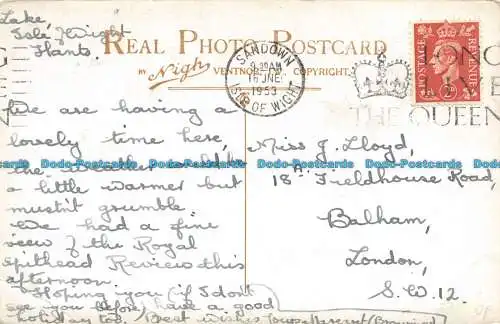 Lake,
Isle of Wight
Hants.
REAL PHOTO POSTCARD
BY Nigh
VENTNOR. COPYRIGHT.
We are having a
lovely time here,
the weather could be
a little warmer but
mustn't grumble.
We had a fine
view of the Royal
Spithead Review this
afternoon.
Hoping you (if I don't
see you before) have a good
holiday too. Best wishes
SANDOWN
9.30AM
16 JNE
1953
ISLE OF WIGHT
LONG
LIVE
THE QUEEN
POSTAGE
REVENUE
Miss J. Lloyd,
18A Fieldhouse Road
Balham,
London,
S.W.12.
Dodo-Postcards.com